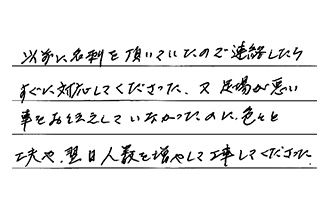 以前に名刺を頂いていたので連絡したら
すぐに対応してくださった。又足場が悪い
事をお伝えしていなかったのに、色々と
工夫や、翌日人数を増やして工事してくださった。